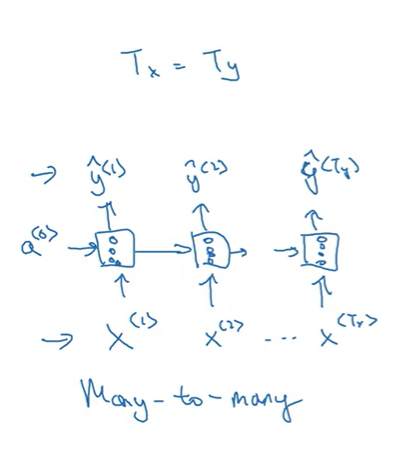 Tx = Ty
ŷ⟨1⟩ ŷ⟨2⟩ ŷ⟨Ty⟩
a⟨0⟩
x⟨1⟩ x⟨2⟩ ... x⟨Tx⟩
Many-to-many